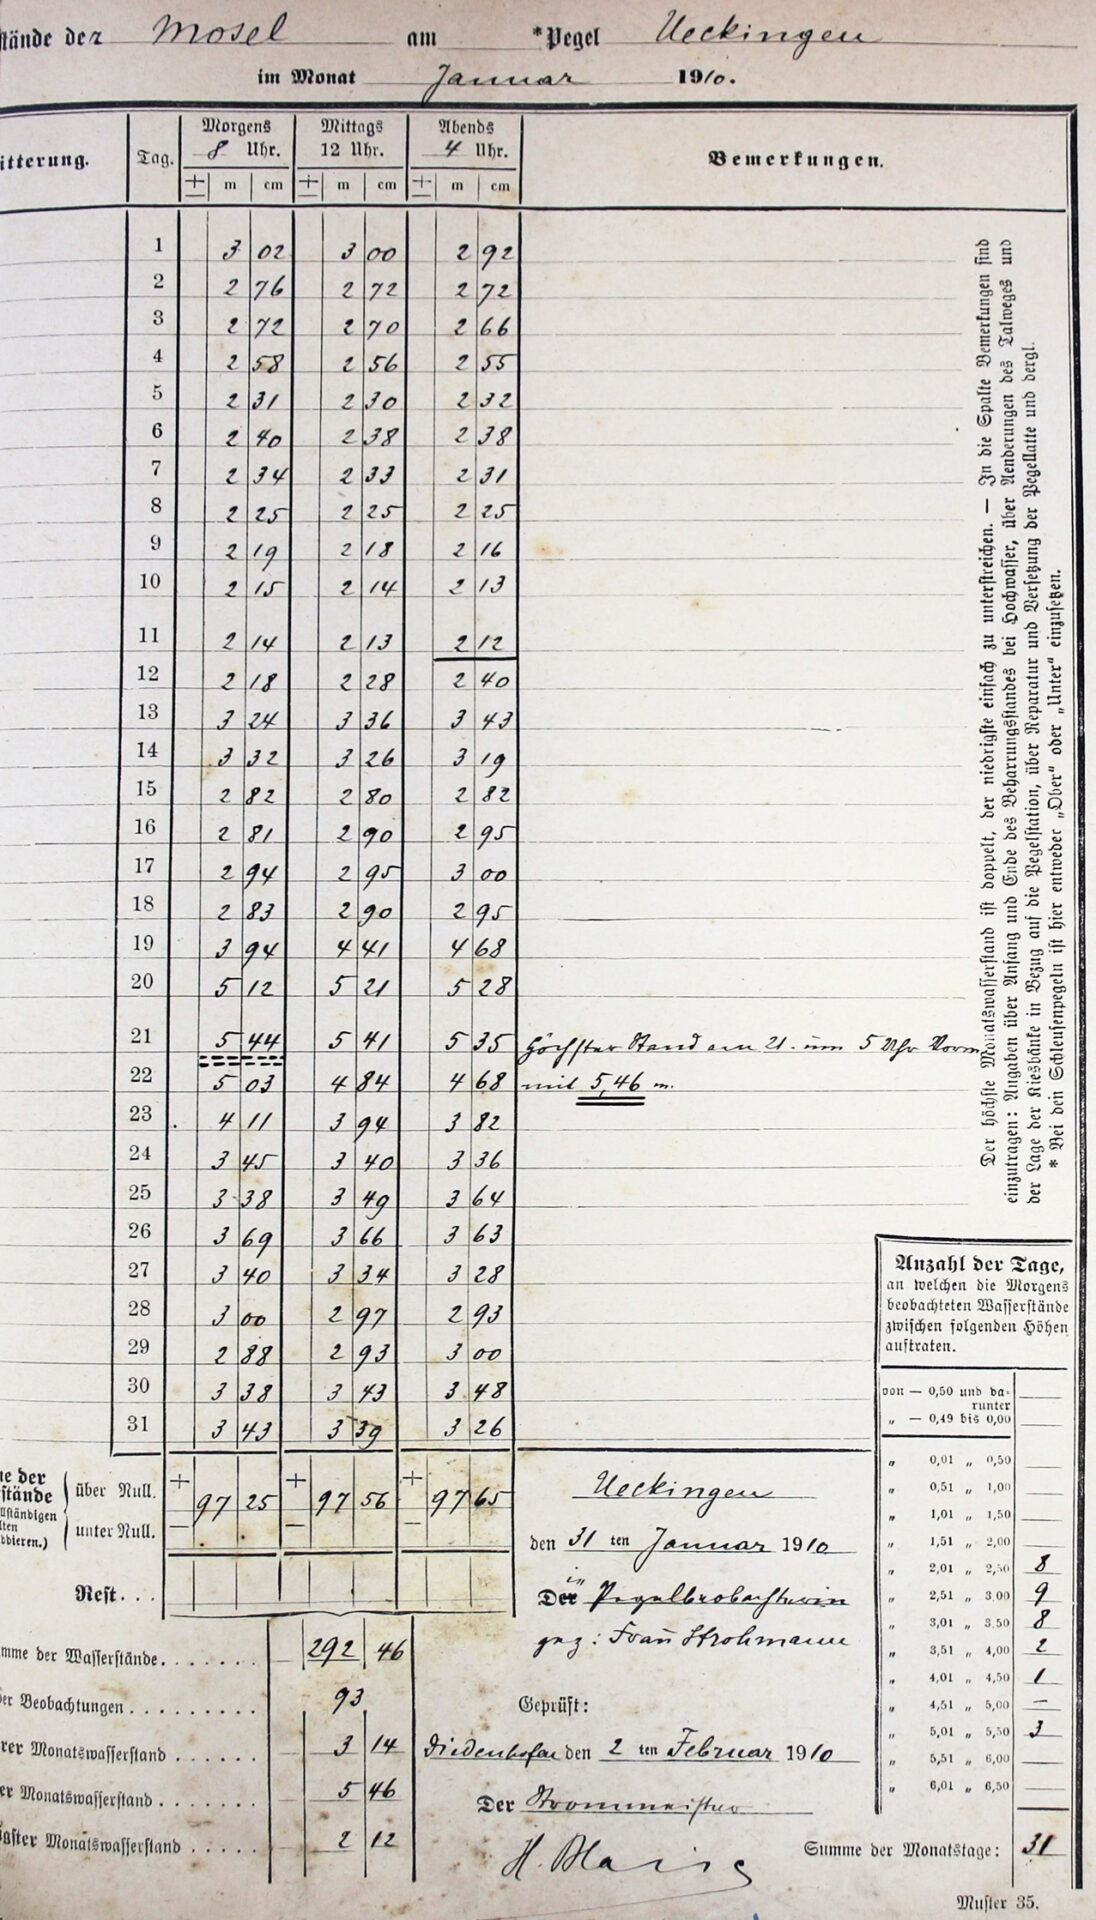 stände der Mosel am *Pegel Ueckingen
im Monat Januar 1910.
itterung. Tag. Morgens 8 Uhr. Mittags 12 Uhr. Abends 4 Uhr. Bemerkungen.
± m cm ± m cm ± m cm
1 3 02 3 00 2 92
2 2 76 2 72 2 72
3 2 72 2 70 2 66
4 2 58 2 56 2 55
5 2 31 2 30 2 32
6 2 40 2 38 2 38
7 2 34 2 33 2 31
8 2 25 2 25 2 25
9 2 19 2 18 2 16
10 2 15 2 14 2 13
11 2 14 2 13 2 12
12 2 18 2 28 2 40
13 3 24 3 36 3 43
14 3 32 3 26 3 19
15 2 82 2 80 2 82
16 2 81 2 90 2 95
17 2 94 2 95 3 00
18 2 83 2 90 2 95
19 3 94 4 41 4 68
20 5 12 5 21 5 28
21 5 44 5 41 5 35 Höchster Stand am 21. um 5 Uhr Vorm
22 5 03 4 84 4 68 mit 5,46 m.
23 4 11 3 94 3 82
24 3 45 3 40 3 36
25 3 38 3 49 3 64
26 3 69 3 66 3 63
27 3 40 3 34 3 28
28 3 00 2 97 2 93
29 2 88 2 93 3 00
30 3 38 3 43 3 48
31 3 43 3 39 3 26
Der höchste Monatswasserstand ist doppelt, der niedrigste einfach zu unterstreichen. — In die Spalte Bemerkungen sind
einzutragen: Angaben über Anfang und Ende des Beharrungsstandes bei Hochwasser, über Aenderungen des Talweges und
der Lage der Kiesbänke in Bezug auf die Pegelstation, über Reparatur und Versetzung der Pegellatte und dergl.
* Bei den Schleusenpegeln ist hier entweder „Ober“ oder „Unter“ einzusetzen.
Anzahl der Tage,
an welchen die Morgens
beobachteten Wasserstände
zwischen folgenden Höhen
auftraten.
von — 0,50 und da-
runter
„ — 0,49 bis 0,00
„ 0,01 „ 0,50
„ 0,51 „ 1,00
„ 1,01 „ 1,50
„ 1,51 „ 2,00
„ 2,01 „ 2,50 8
„ 2,51 „ 3,00 9
„ 3,01 „ 3,50 8
„ 3,51 „ 4,00 2
„ 4,01 „ 4,50 1
„ 4,51 „ 5,00 —
„ 5,01 „ 5,50 3
„ 5,51 „ 6,00
„ 6,01 „ 6,50
Summe der Monatstage: 31
ne der
stände
llständigen
lten
ddieren.)
über Null.
unter Null.
+ 97 25 + 97 56 + 97 65
— — —
Rest. . .
mme der Wasserstände. . . . . . . 292 46
der Beobachtungen . . . . . . . . . 93
rer Monatswasserstand . . . . . . 3 14
er Monatswasserstand . . . . . . . 5 46
igster Monatswasserstand . . . . . 2 12
Ueckingen
den 31 ten Januar 1910
Der Pegelbeobachterin
gez: Frau Strohmann
Geprüft:
Diedenhofen den 2 ten Februar 1910
Der Strommeister
Muster 35.